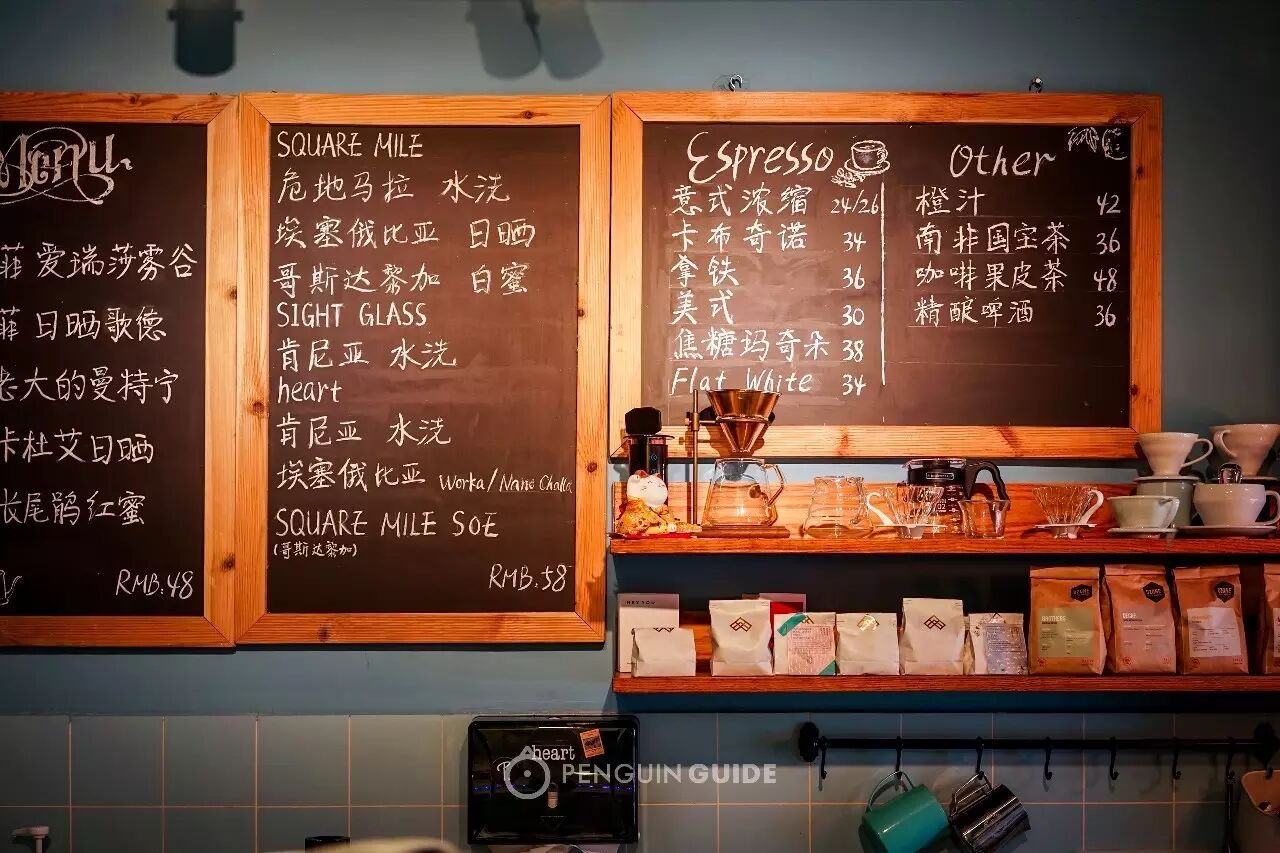 Menu
菲 爱瑞莎雾谷
菲 日晒歌德
老大的曼特宁
卡杜艾日晒
长尾鹃红蜜
RMB:48
SQUARE MILE
危地马拉 水洗
埃塞俄比亚 日晒
哥斯达黎加 白蜜
SIGHT GLASS
肯尼亚 水洗
heart
肯尼亚 水洗
埃塞俄比亚 Worka/Nano Challa
SQUARE MILE SOE
(哥斯达黎加)
RMB:58
Espresso
意式浓缩 24/26
卡布奇诺 34
拿铁 36
美式 30
焦糖玛奇朵 38
Flat White 34
Other
橙汁 42
南非国宝茶 36
咖啡果皮茶 48
精酿啤酒 36
HEY YOU
OZONE
BROTHERS
OZONE
DECAF
OZONE
heart
PENGUIN GUIDE